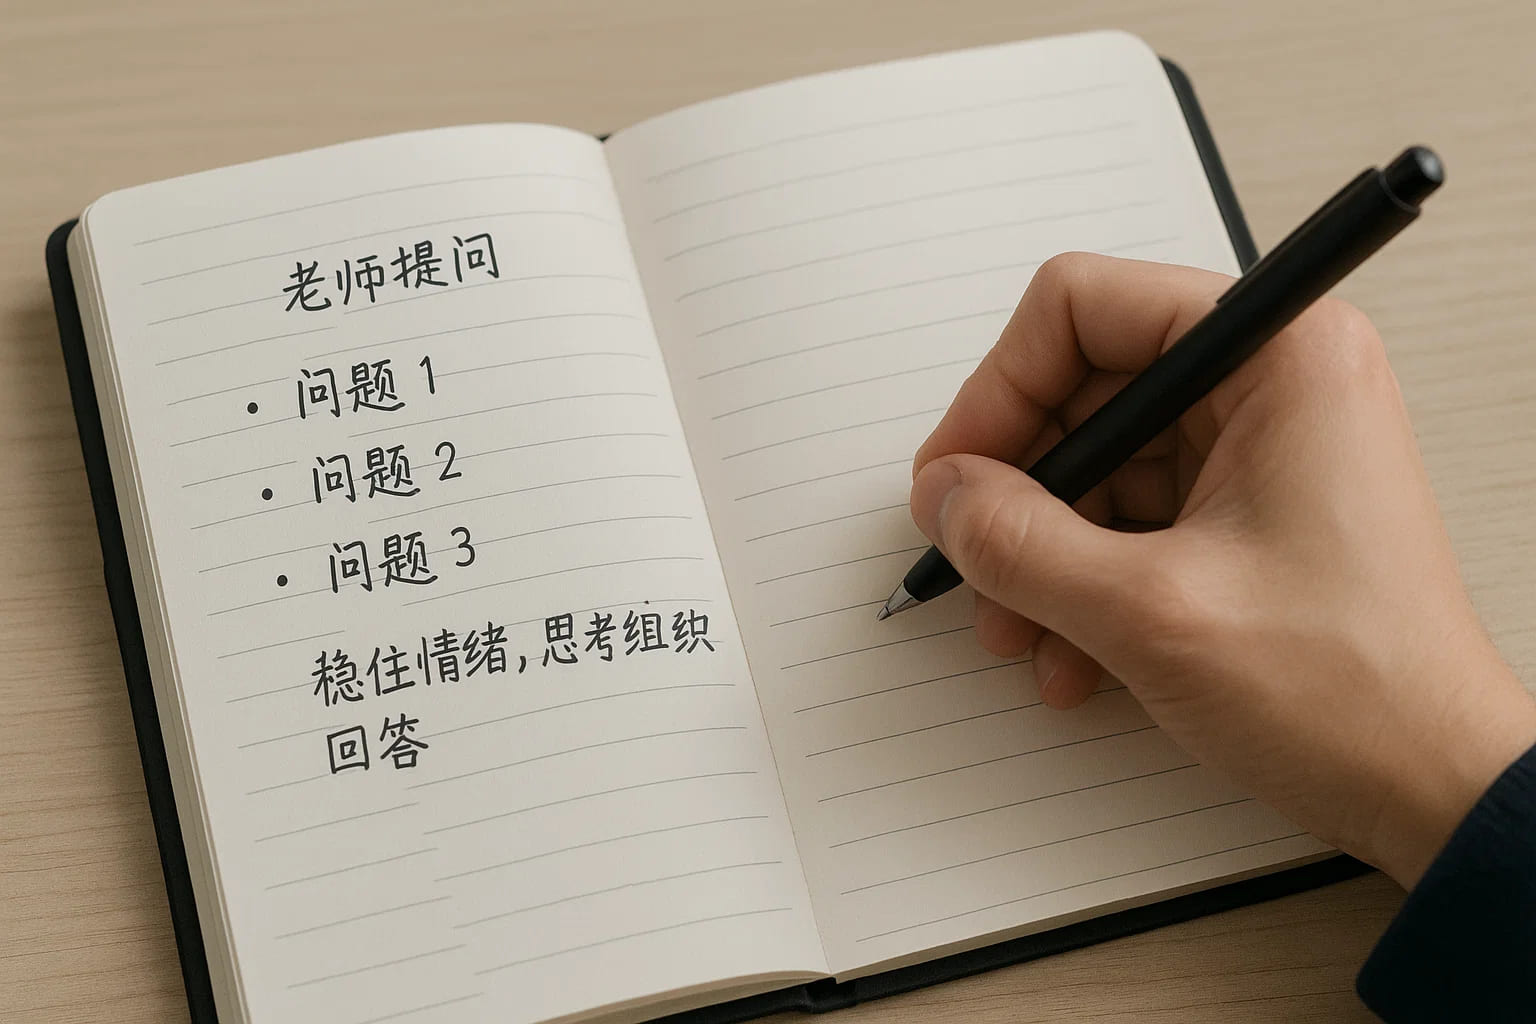 老师提问
• 问题 1
• 问题 2
• 问题 3
稳住情绪,思考组织
回答